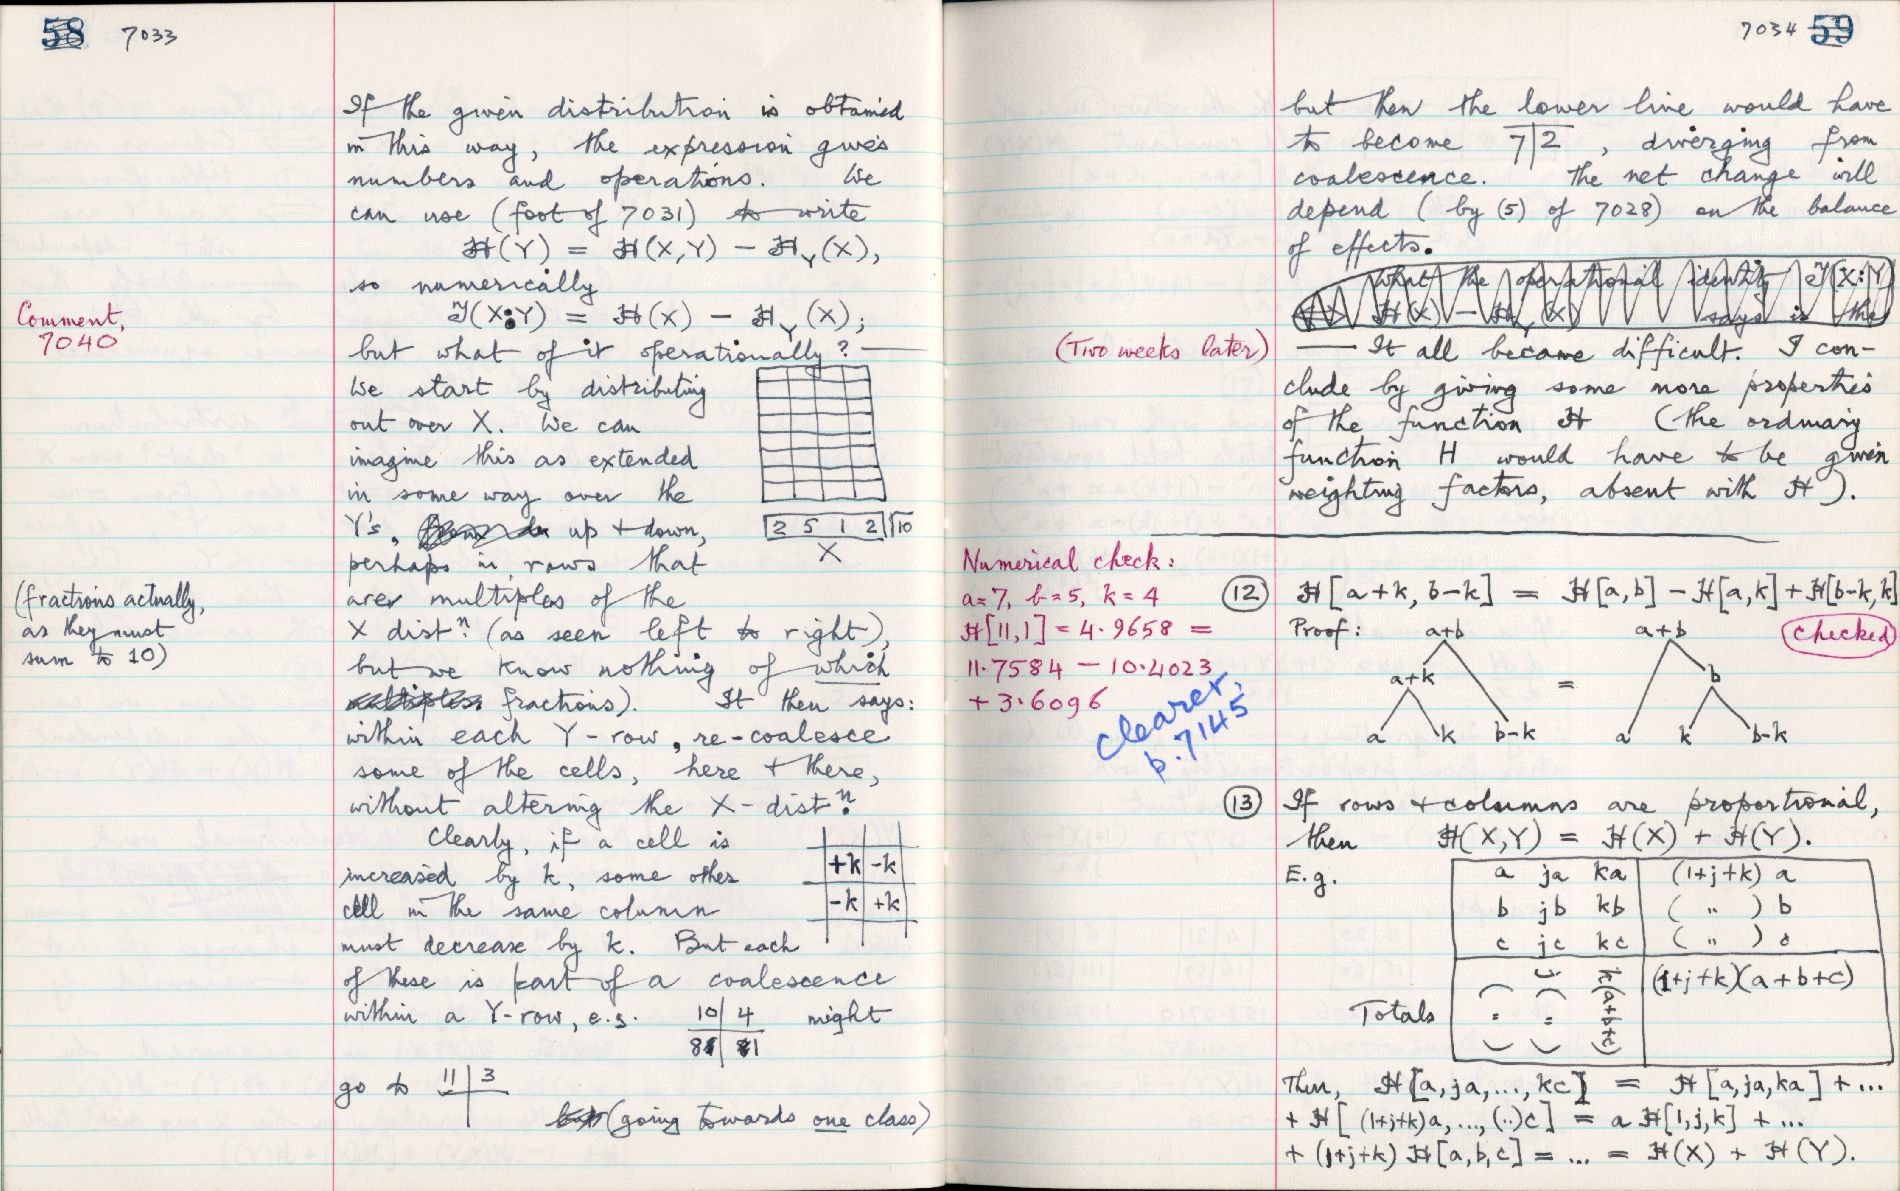 58 7033
If the given distribution is obtained
in this way, the expression gives
numbers and operations. We
can use (foot of 7031) to write
ℋ(Y) = ℋ(X,Y) − ℋ_Y(X),
so numerically
Comment,
7040
𝒥(X:Y) = ℋ(X) − ℋ_Y(X);
but what of it operationally? ——
We start by distributing
out over X. We can
imagine this as extended
in some way over the
Y's, up + down,
2 5 1 2 | 10
X
perhaps in rows that
are multiples of the
(fractions actually,
as they must
sum to 10)
X distⁿ. (as seen left to right),
but we know nothing of which
fractions). It then says:
within each Y-row, re-coalesce
some of the cells, here + there,
without altering the X-distⁿ.
Clearly, if a cell is
increased by k, some other
cell in the same column
must decrease by k. But each
+k -k
-k +k
of these is part of a coalescence
within a Y-row, e.g. 10 | 4 might
8 | 1
go to 11 | 3
(going towards one class)
7034 59
but then the lower line would have
to become 7|2, diverging from
coalescence. The net change will
depend (by (5) of 7028) on the balance
of effects.
What the operational identity 𝒥(X:Y)
ℋ(X) − ℋ_Y(X) says is the
(Two weeks later)
—— It all became difficult. I con-
clude by giving some more properties
of the function ℋ (the ordinary
function H would have to be given
weighting factors, absent with ℋ).
Numerical check:
a=7, b=5, k=4
ℋ[11,1] = 4.9658 =
11.7584 − 10.4023
+ 3.6096
clearer,
p.7145
(12) ℋ[a+k, b−k] = ℋ[a,b] − ℋ[a,k] + ℋ[b−k,k]
Proof: a+b a+b checked
a+k = b
a k b-k a k b-k
(13) If rows + columns are proportional,
then ℋ(X,Y) = ℋ(X) + ℋ(Y).
E.g. a ja ka (1+j+k) a
b jb kb ( " ) b
c jc kc ( " ) c
Totals k(a+b+c) (1+j+k)(a+b+c)
Then, ℋ[a,ja,...,kc] = ℋ[a,ja,ka] + ...
+ ℋ[(1+j+k)a,...,(..)c] = a ℋ[1,j,k] + ...
+ (1+j+k) ℋ[a,b,c] = ... = ℋ(X) + ℋ(Y).